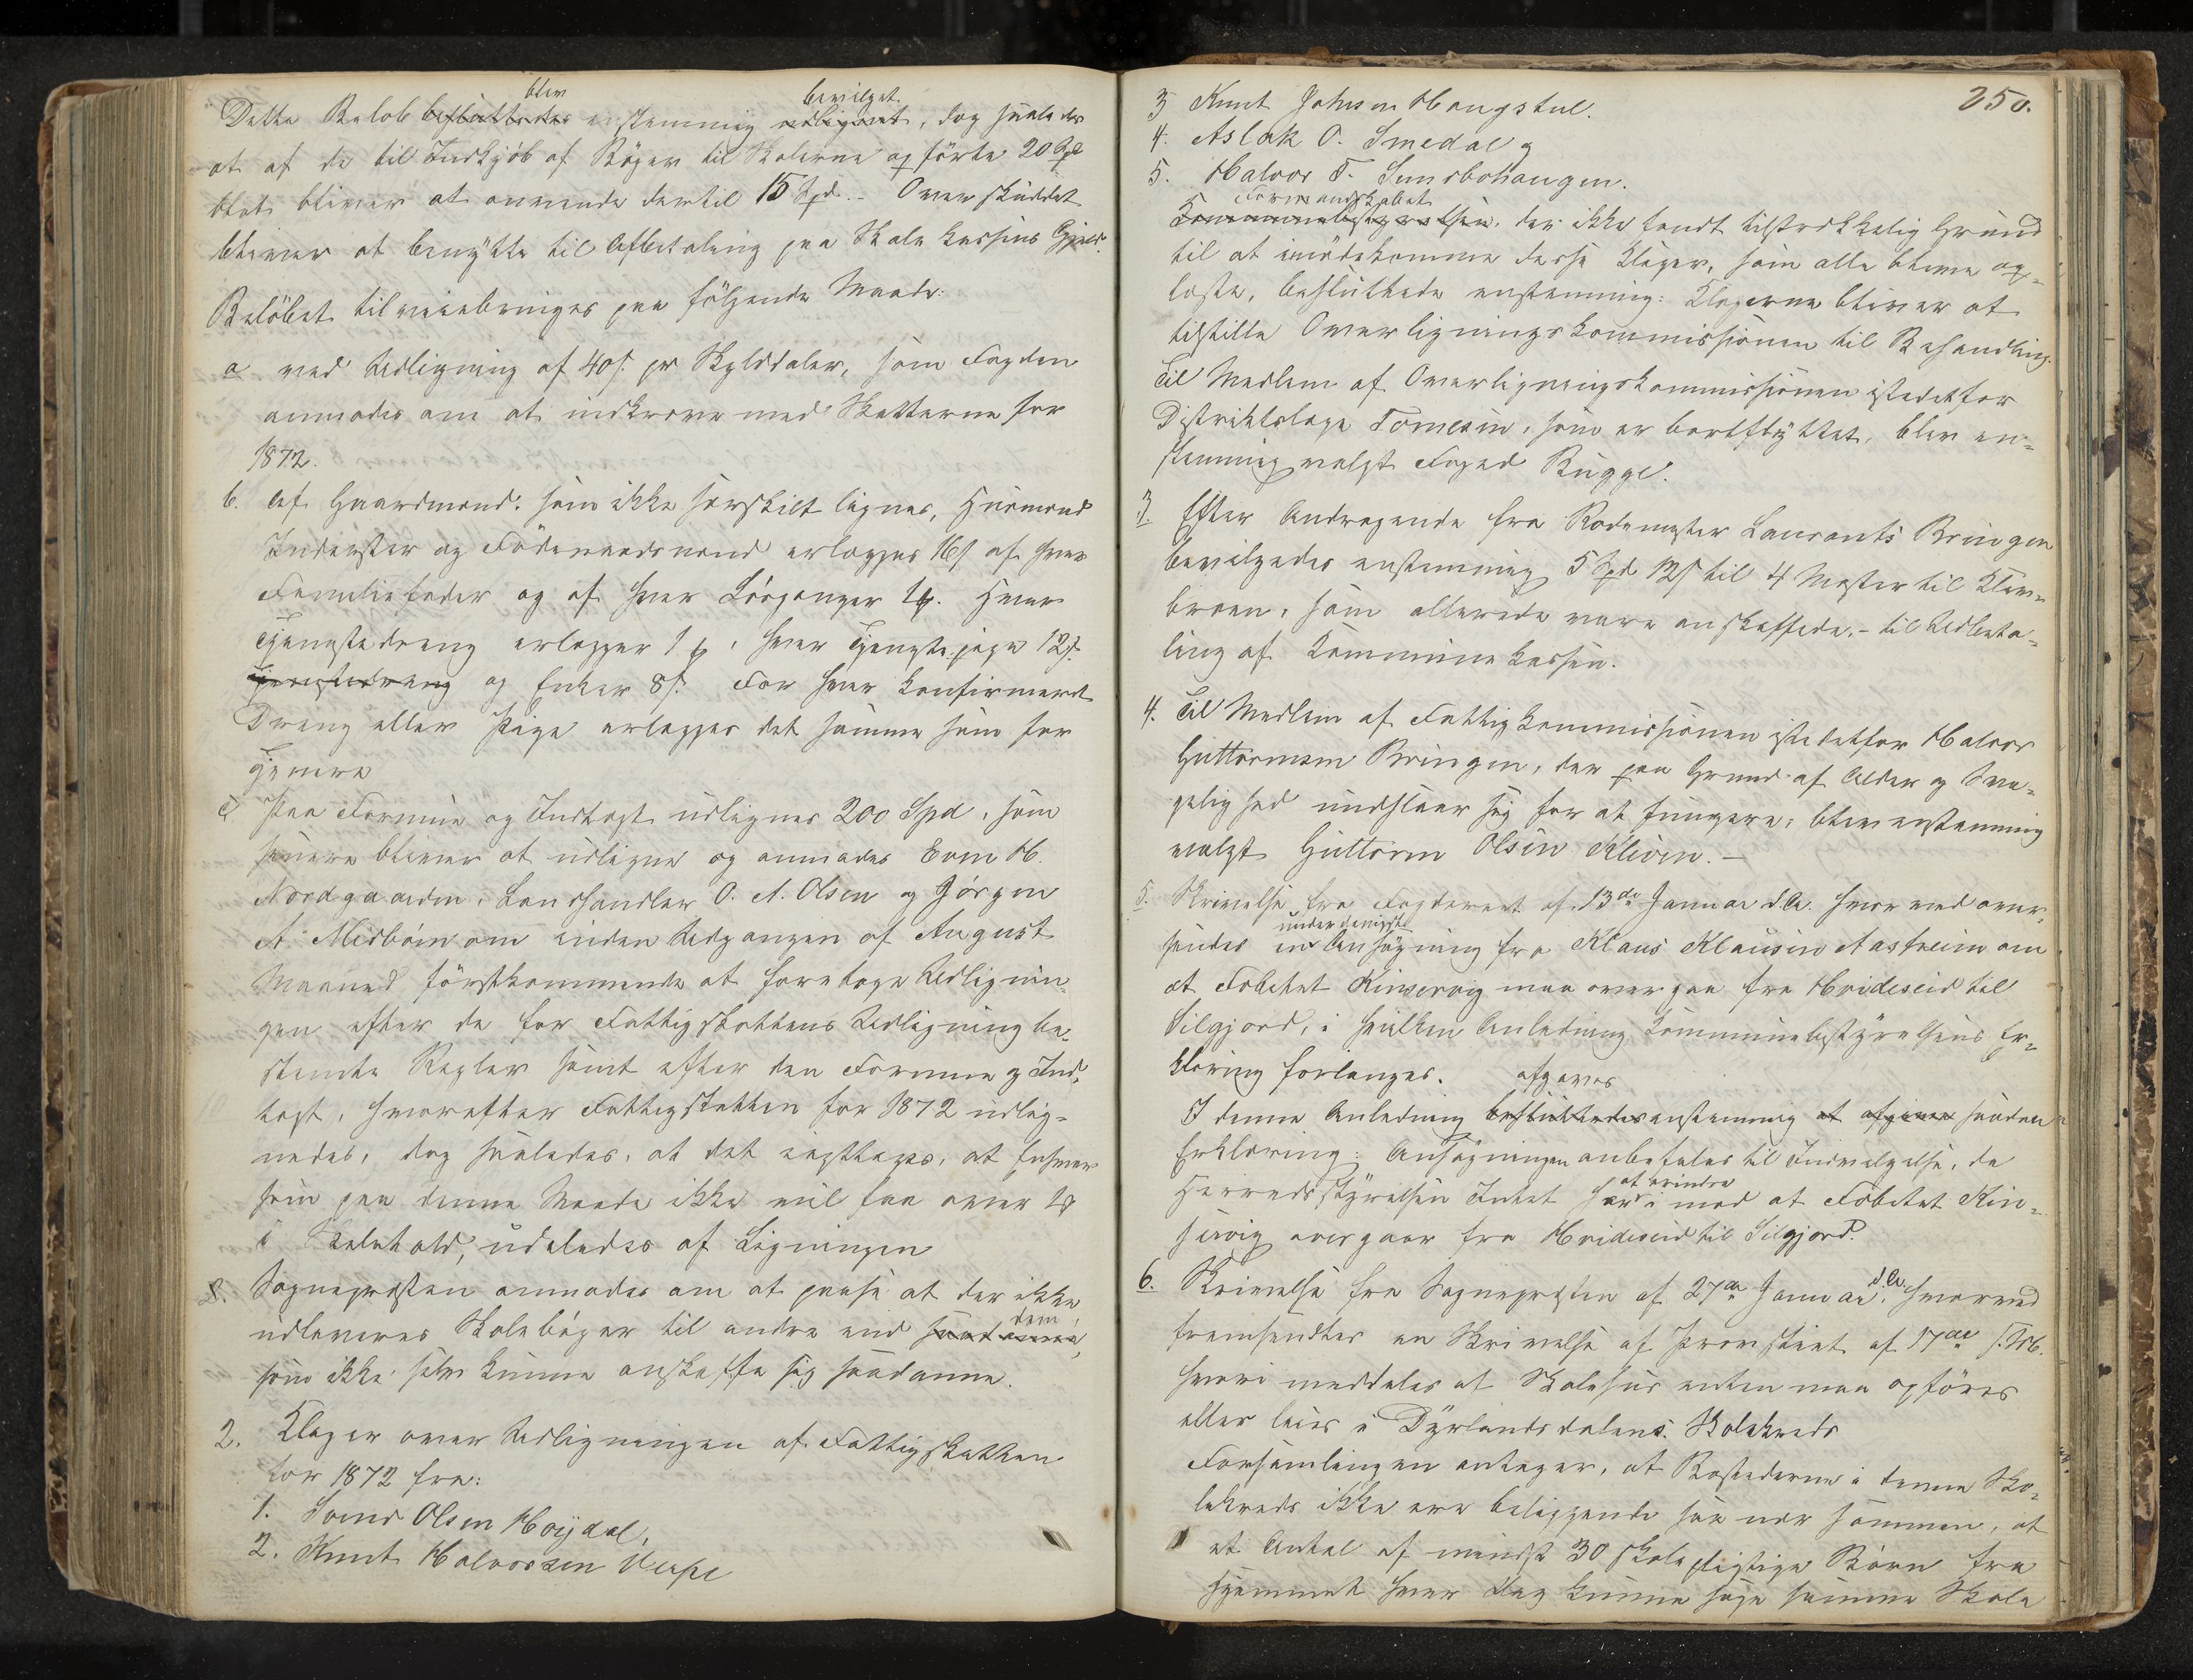 Dette Beløb besluttedes blev enstemmig udlignet bevilget, dog saaledes
at af de til Indkjöb af Böger til Skolerne opförte 20 Spd
blot bliver at anvende dertil 15 Spd. – Overskuddet
bliver at benytte til Afbetaling paa Skolekassens Gjæld.
Belöbet tilveiebringes paa fölgende Maade:
a ved Udligning af 40 s. pr Skylddaler, som Fogden
anmodes om at indkræve med Skatterne for
1872.
b. Af Gaardmænd, som ikke særskilt lignes, Husmænd
Inderster og Föderaadsmænd erlægges 16 s af hver
Familiefader og af hver Lösgænger
Tjenestedreng erlægger hver Tjenestepige 12 s.
Tjenestedreng og Enker 8 s. For hver konfirmeret
Dreng eller Pige erlægges det samme som for
Tjenere
c Paa Formue og Indtægt udlignes 200 Spd, som
senere bliver at udligne og anmodes Even H.
Nordgaarden, Landhandler O. A. Olsen og Jörgen
A Midböen om inden Udgangen af August
Maaned förstkommende at foretage Udlignin-
gen efter de for Fattigskattens Udligning be-
stemte Regler samt efter den Formue og Ind-
tægt, hvorefter Fattigskatten for 1872 udlig-
nedes, dog saaledes, at det iagttages, at Enhver
som paa denne Maade ikke vil faa over
i Skolehold, udelades af Ligningen
d. Sognepræsten anmodes om at paase at der ikke
udleveres Skoleböger til andre end dem,
som ikke selv kunne anskaffe sig saadanne.
2. Klager over Udligningen af Fattigskatten
for 1872 fra:
1. Svend Olsen Höydal,
2. Knut Halvorsen Verpe
250.
3 Knut Johnsen Haugstul.
4. Aslak O. Smedal og
5. Halvor T. Sundbohaugen.
Kommunebestyrelsen Formandskabet, der ikke fandt tilstrækkelig Grund
til at imödekomme disse Klager, som alle bleve op-
læste, besluttede enstemmig: Klagerne bliver at
tilstille Overligningskommissionen til Behandling.
Til Medlem af Overligningskommissionen istedetfor
Distriktslæge Tömesen, som er bortflyttet, blev en-
stemmig valgt Foged Rugge.
3. Efter Andragende fra Rodemester Laurants Bringen
bevilgedes enstemmig 5 Spd 12 s til 4 Master til Klev-
broen, som allerede vare anskaffede, – til Udbeta-
ling af Kommunekassen.
4. Til Medlem af Fattigkommissionen istedetfor Halvor
Guttormsen Bringen, der paa Grund af Alder og Sva-
gelighed undslaar sig for at fungere, blev enstemmig
valgt Guttorm Olsen Kleven. –
5. Skrivelse fra Fogderiet af 13de Januar d.A. hvorved over-
sendes en underdanigst Ansögning fra Klaus Klausen Aastveim om
atFöbetet Kinservig maa overgaa fra Hvideseid til
Silgjord, i hvilken Anledning Kommunebestyrelsens Er-
klæring forlanges.
I denne Anledning besluttedes afgaves enstemmig at afgive saadan
Erklæring: Ansögningen anbefales til Indvilgelse, da
Herredsstyrelsen Intet har at erindre imod at Föbetet Kin-
servig overgaar fra Hvideseid til Silgjord.
6. Skrivelse fra Sognepræsten af 27de Januar d.A. hvorved
fremsendtes en Skrivelse af Provstiet af 17de s.M.
hvori meddeles at Skolehus enten maa opföres
eller leies i Dyrlandsdalens Skolekreds
Forsamlingen antager, at Bostederne i denne Sko-
lekreds ikke ere beliggende saa nær sammen, at
et Antal af mindst 30 skolepligtige Börn fra
Hjemmet hver Dag kunne söge samme Skole